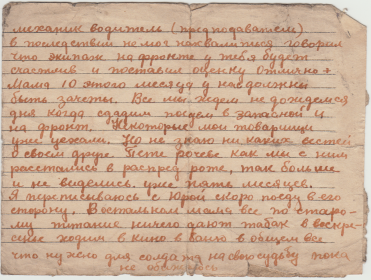 механик водитель (преподаватель)
в последствии не мог нахвалится говорил
что экипаж на фронте у тебя будет
счастлив и поставил оценку отлично+
Мама 10 этого месяца у нас должны
быть зачеты. Все мы ждем не дождемся
дня когда сдадим поедем в запасной и
на фронт. Некоторые мои товарищи
уже уехали. Но не знаю ни каких вестей
о своем друге. Пете как мы с ним
расстались в распред роте, так больше
и не виделись уже пять месяцев.
Я переписываюсь с Юрой скоро поеду в его
сторону. В остальном мама все по старо-
му питание ничего дают табак в воскре-
сенье ходим в кино в баню в общем все
что нужно для солдата на свою судьбу пока
не обижаюсь